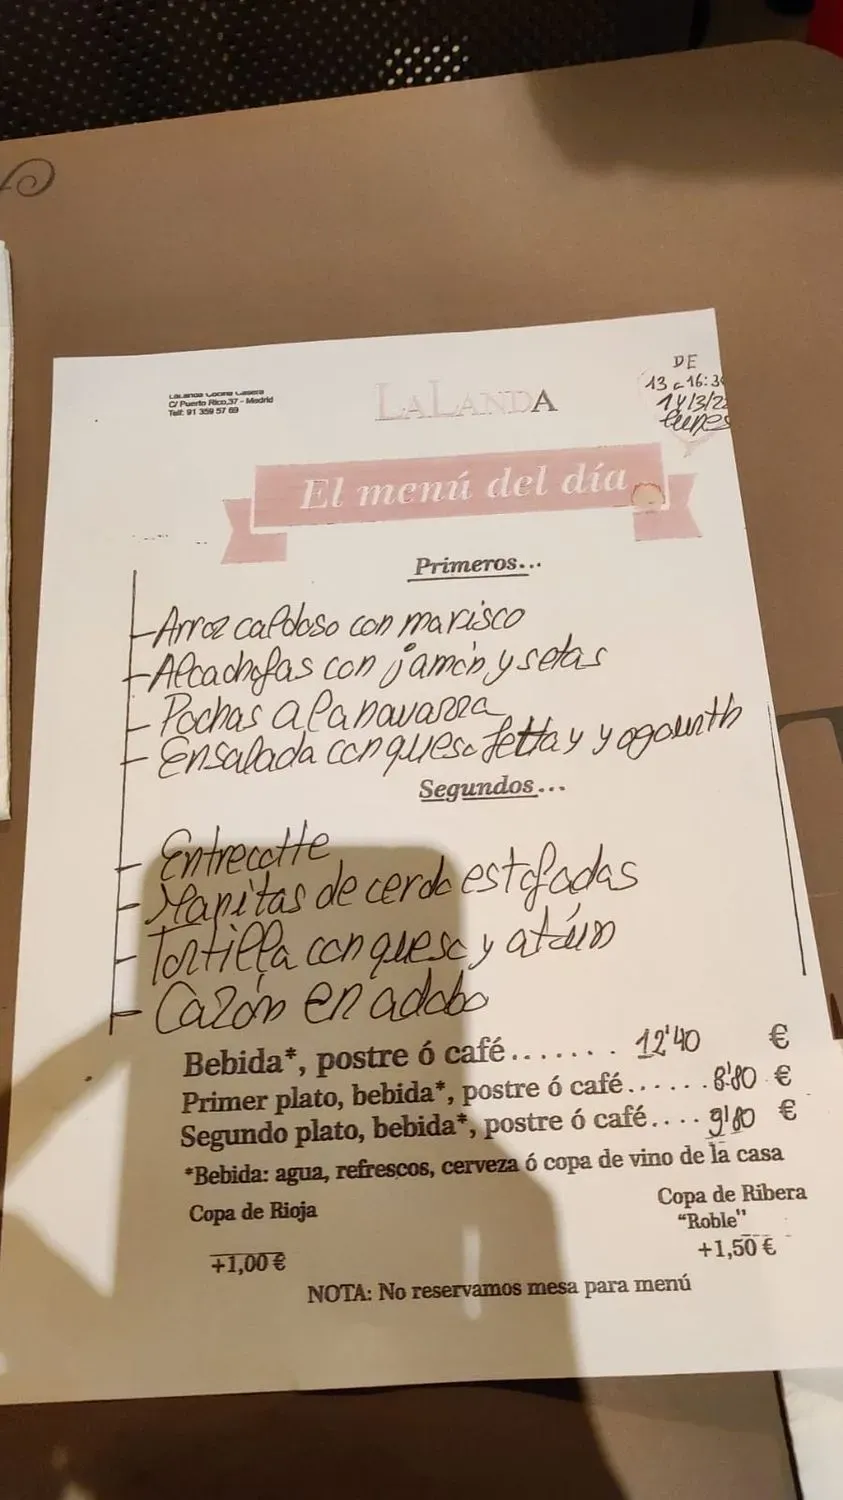 LaLanda Cocina Casera
C/ Puerto Rico,37 - Madrid
Telf: 91 359 57 69
LALANDA
DE
13 a 16:30
14/3/22
lunes
El menú del día
Primeros...
-Arroz caldoso con marisco
-Alcachofas con jamón y setas
- Pochas a la navarra
- Ensalada con queso fetta y yogounth
Segundos...
- Entrecotte
- Manitas de cerdo estofadas
- Tortilla con queso y atún
- Cazón en adobo
Bebida*, postre ó café....... 12'40 €
Primer plato, bebida*, postre ó café...... 8'80 €
Segundo plato, bebida*, postre ó café.... 9'80 €
*Bebida: agua, refrescos, cerveza ó copa de vino de la casa
Copa de Rioja
+1,00 €
Copa de Ribera
"Roble"
+1,50 €
NOTA: No reservamos mesa para menú